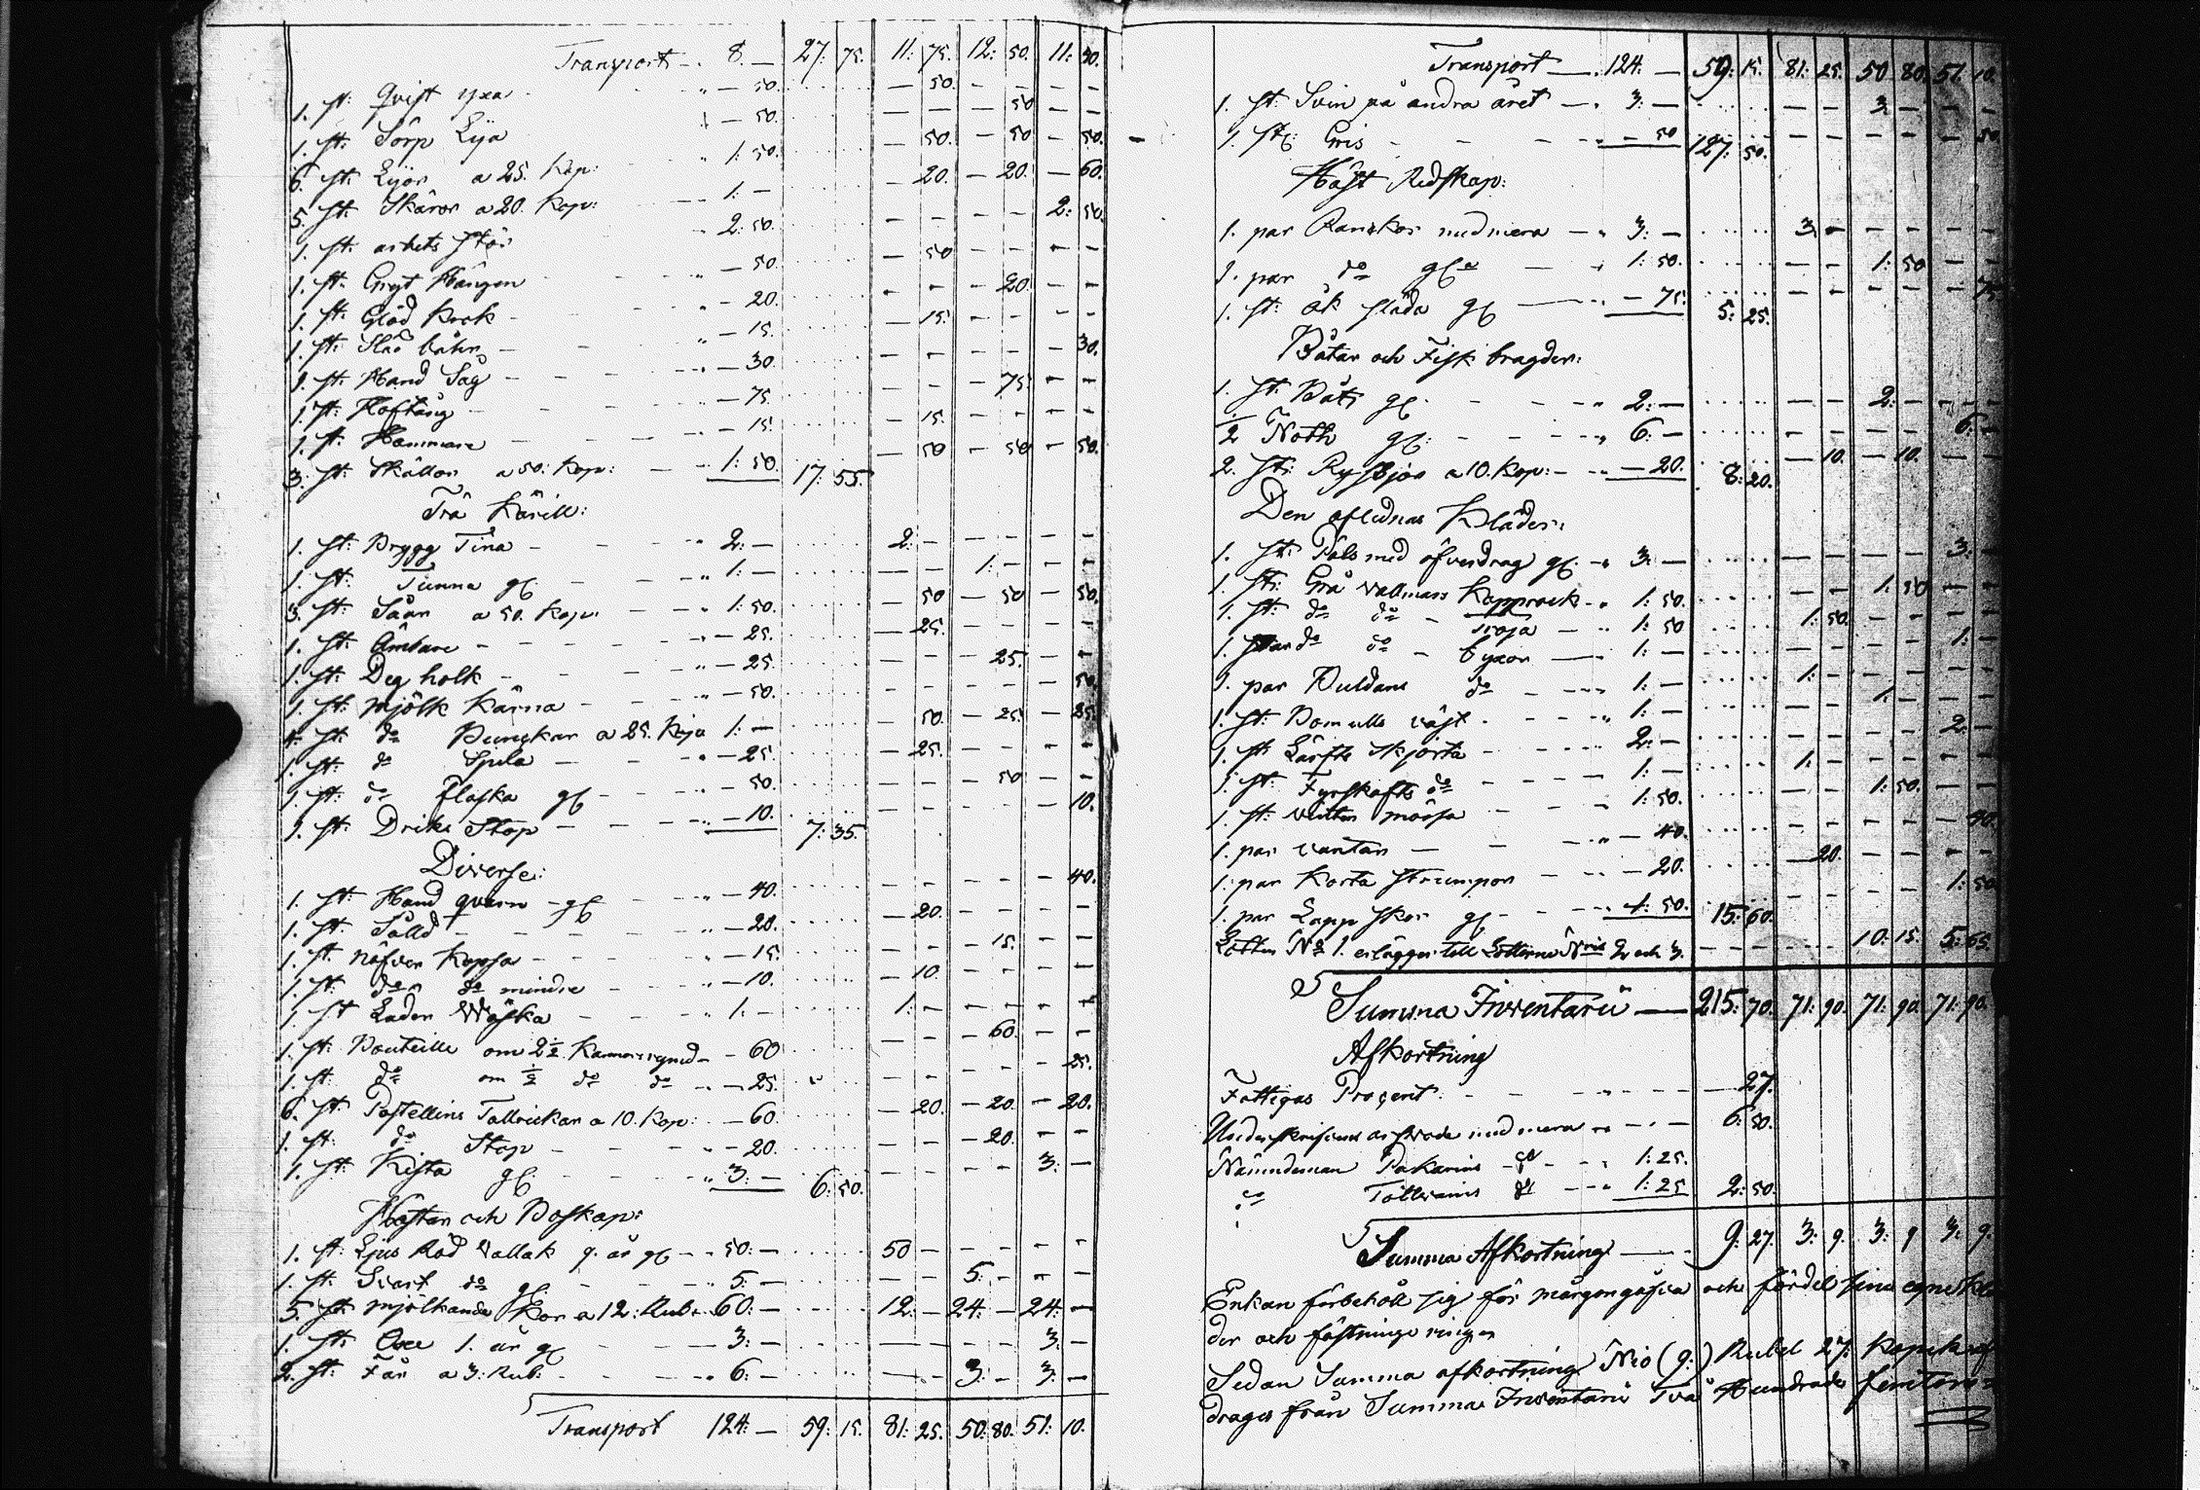 Transport 8. — 27: 75. 11: 75. 12: 50. 11: 50.
1. st: Qvist yxa — 50. — 50.
1. st: Sörp Lya — 50. — 50
6. st: Lyor a 25. Kop: 1: 50. — 50. — 50 — 50.
5. st: Skäror a 20. Kop: 1: — — 20. — 20. — 60.
1. st: arbets stör 2: 50. 2: 50.
1. st: Gryt Hängen — 50. — 50
1. st: Glöd Krok — 20. 20.
1. st: — 15. — 15.
1. st: Hand Såg — 30. 30.
1. st: Hoftång — 75. — 75
1. st: Hammare — 15. — 15.
3. st: Skällor a 50. Kop: 1: 50. 17: 55. — 50 — 50 — 50.
Trä Kärill:
1. st: Brygg Tina 2: — 2: —
1. st: Tunna gl. 1: — 1: —
3. st: Såar a 50. Kop: 1: 50. — 50 — 50 — 50.
1. st: Ämbare — 25. — 25.
1. st: Deg holk — 25. — 25.
1. st: Mjölk Kärna — 50. 50.
4. st: do Bunckar a 25. Kop 1: — — 50. — 25. — 25.
1. st: do Spila — 25. — 25.
1. st: do flaska gl — 50. 50
1. st: Dricks Stop — 10. 7: 35. — 10.
Diverse:
1. st: Hand qvarn gl — 40. — 40.
1. st: Såld — 20. — 20.
1. st: Näfver Kopsa — 15. — 15.
1. st: do do mindre — 10. — 10.
1. st Läder Wäska 1: — 1: —
1. st: Bouteille om 2½ Kannor — 60 60.
1. st: do om ½ do do — 25. — 25.
6. st: Postellins Tallrickar a 10. Kop: — 60. — 20. — 20. — 20.
1. st: do Stop — 20. — 20.
1. st: Kista gl. 3: — 6: 50. 3: —
Hästar och Boskap:
1. st: Ljus Röd Vallak 9. år gl 50: — 50 —
1. st: Svart do gl. 5: — 5: —
5. st: mjölkande Kor a 12: Rub. 60: — 12: — 24: — 24: —
1. st: Oxe 1. år gl 3: — 3: —
2. st: Får a 3: Rub: 6: — 3: — 3: —
Transport 124: — 59: 15. 81: 25. 50: 80. 51: 10.
Transport 124: — 59: 15. 81: 25. 50 80. 51: 10.
1. st: Svin på andra året 3: — 3: —
1. st: Gris — 50 127: 50. 50.
Häst Redskap:
1. par Rankor med mera 3: — 3: —
1. par do gla 1: 50. 1: 50
1. st: åk släda gl — 75. 5: 25. 75
Båtar och Fisk bragder:
1. st: Båt gl. 2: — 2: —
½ Noth gl. 6: — 6: —
2. st: Rysjor a 10. Kop: — 20. 8: 20. — 10. — 10.
Den aflidnas Kläder:
1. st: Päls med öfverdrag gl. 3: — 3: —
1. st: Grå Vallmars Kapprock 1: 50. 1: 50
1. st: do do — Tröja 1: 50 1: 50.
1. par do do — byxor 1: — 1: —
1. par Buldans do 1: — 1: —
1. st: Bomulls väst 1: — 1: —
1. st Lärfts Skjorta 2: — 2: —
1. st: Fyrskafts do 1: — 1: —
1. st: vinter mössa 1: 50. 1: 50.
1. par vantar — 40. 40.
1. par Korta strumpor — 20. — 20.
1. par Lapp skor gl 1: 50. 15: 60. 1: 50
Lotten No 1. erlägger till Lotterne Nris 2 och 3. 10: 15. 5: 65.
Summa Inventarii 215: 70. 71: 90. 71: 90. 71: 90.
Afkortning
Fattigas Procent — 27.
Underskrifvares arfvode med mera 6: 50.
Nämndeman Pakarinen 1: 25.
do 1: 25 2: 50.
Summa Afkortning 9: 27. 3: 9. 3: 9 3: 9.
Enkan förbehåll sig för morgongåfva och fördel sina egne klä
der och fästninge ringen
Sedan Summa afkortning Nio (9:) Rubel 27. Kopek af
drages från Summa Inventarii Två Hundrade femton